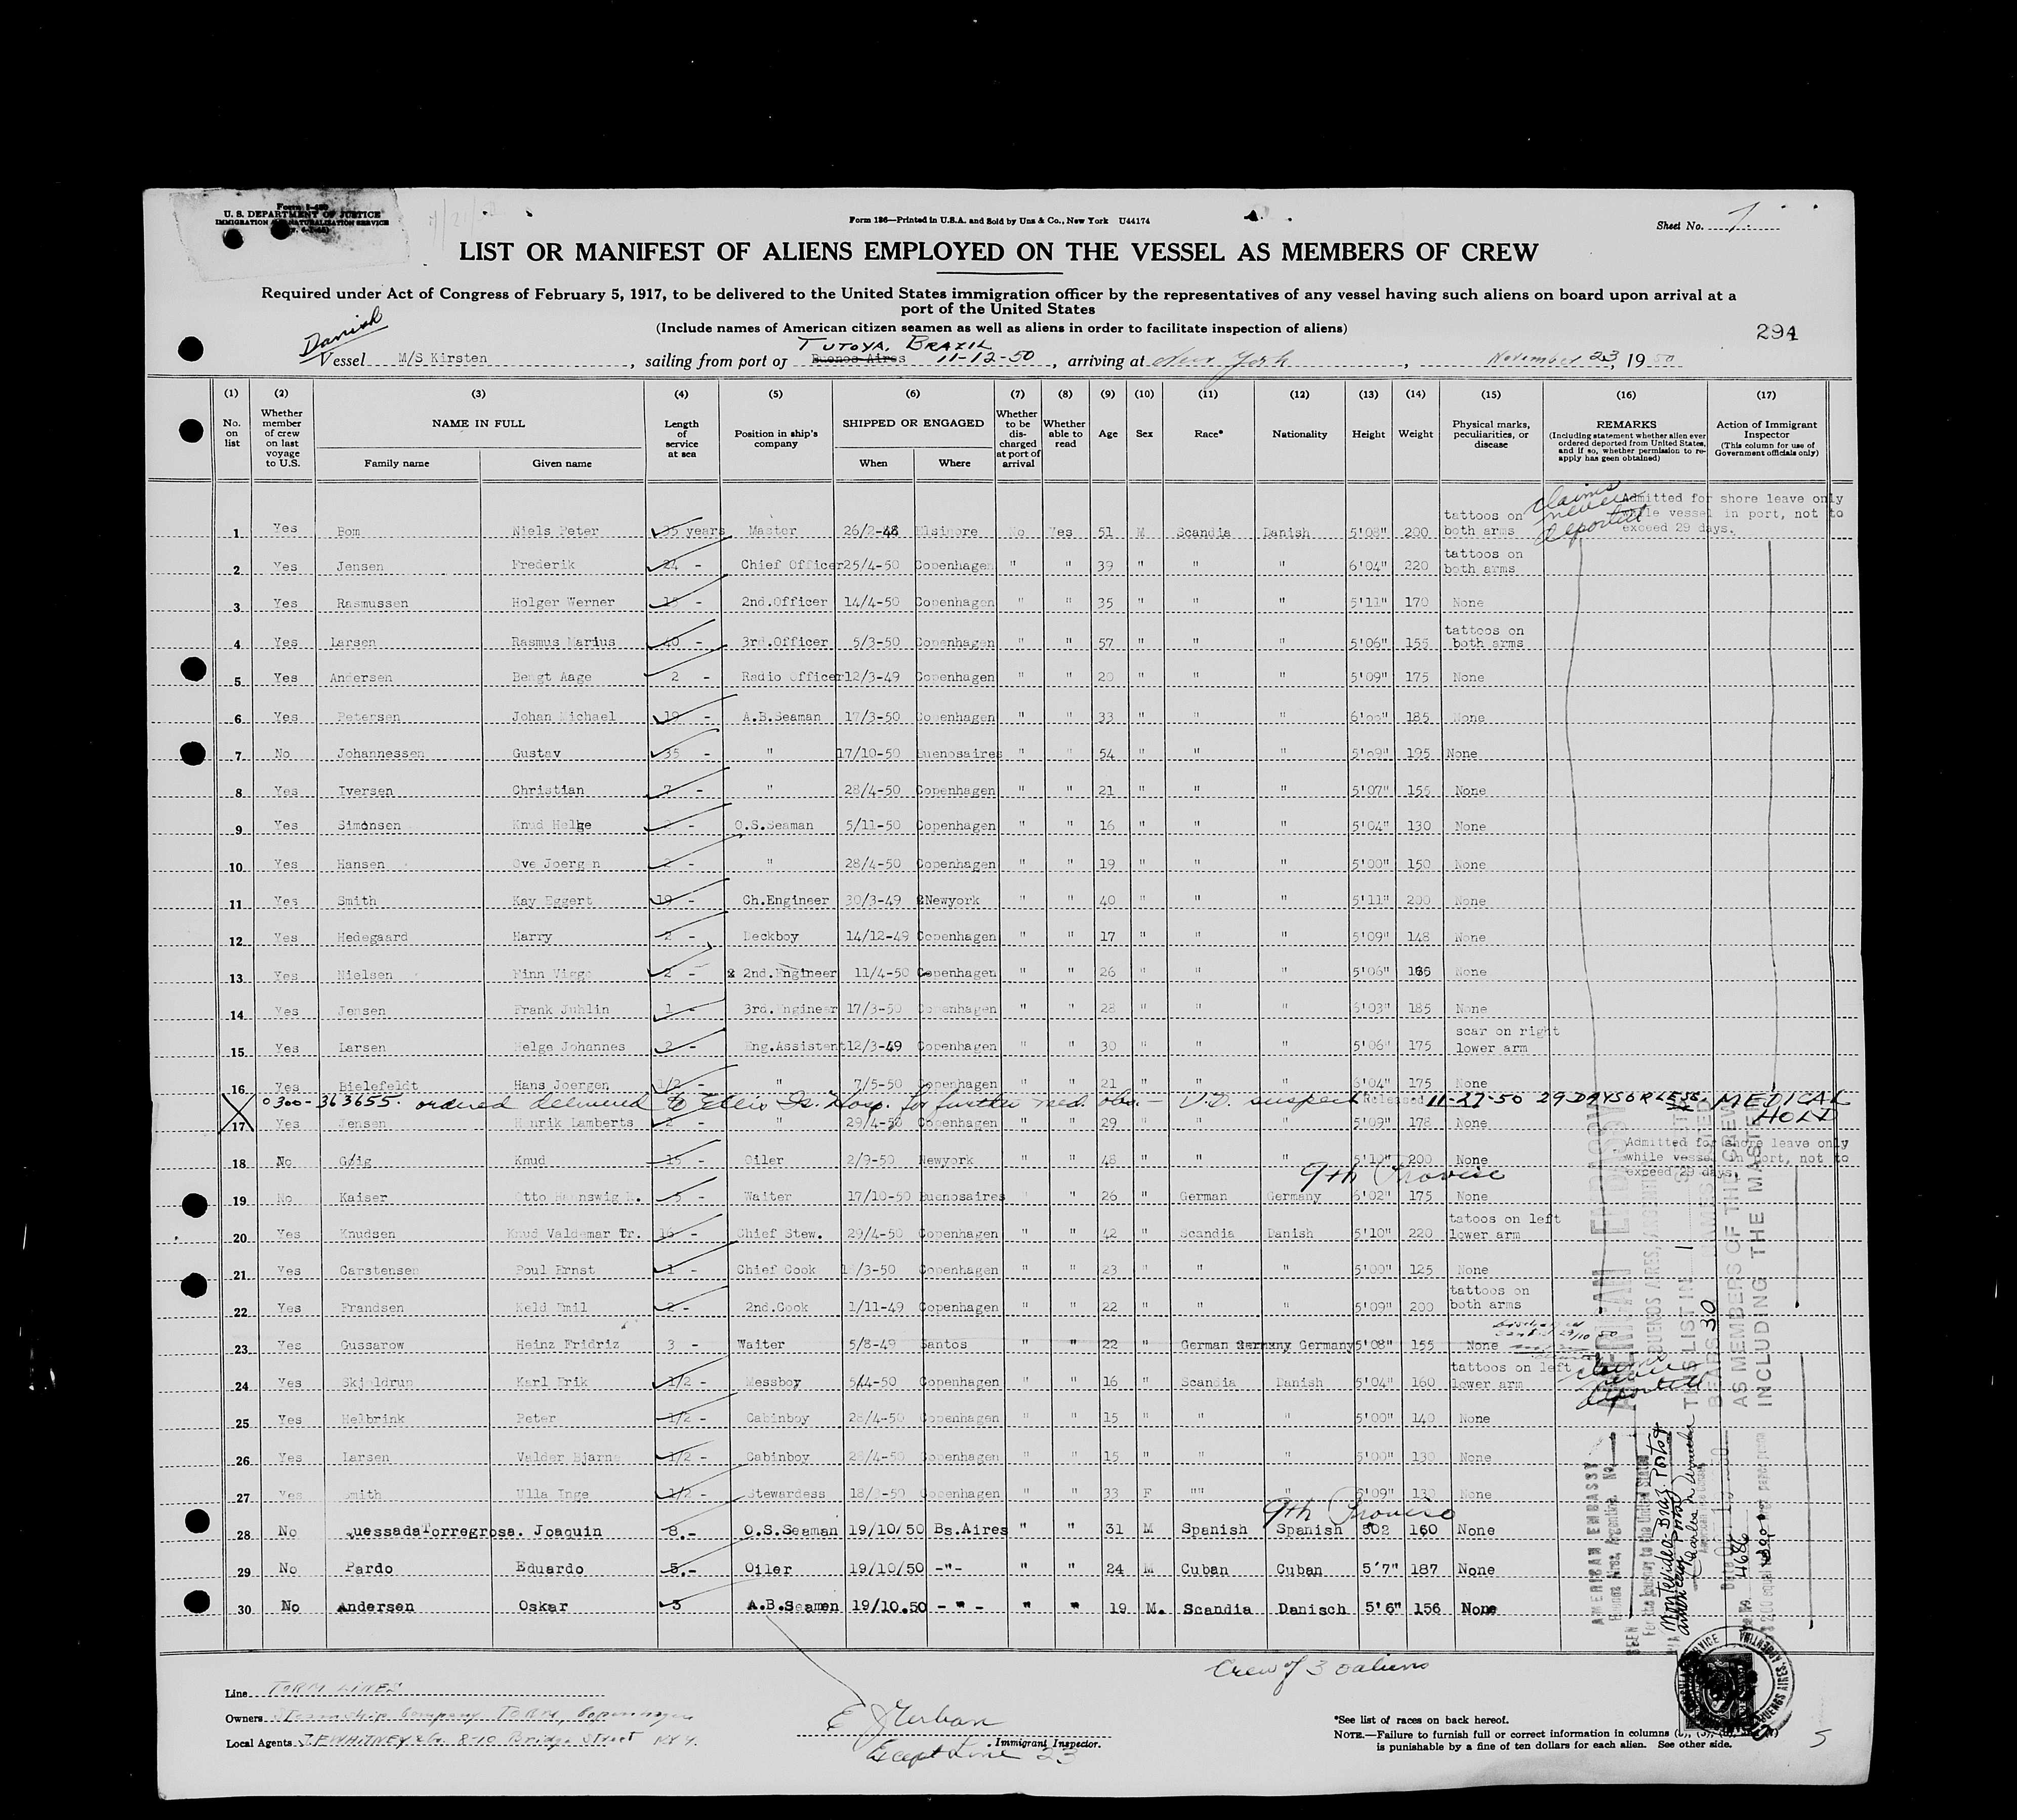 Form I-480
U. S. DEPARTMENT OF JUSTICE
IMMIGRATION AND NATURALIZATION SERVICE
Form 186—Printed in U.S.A. and Sold by Unz & Co., New York U44174
Sheet No. 1.
LIST OR MANIFEST OF ALIENS EMPLOYED ON THE VESSEL AS MEMBERS OF CREW
Required under Act of Congress of February 5, 1917, to be delivered to the United States immigration officer by the representatives of any vessel having such aliens on board upon arrival at a
port of the United States
(Include names of American citizen seamen as well as aliens in order to facilitate inspection of aliens)
294
Danish
TUTOYA, BRAZIL
Vessel M/S Kirsten, sailing from port of Buenos Aires 11-12-50, arriving at New York, November 23, 1950
(1) (2) (3) (4) (5) (6) (7) (8) (9) (10) (11) (12) (13) (14) (15) (16) (17)
No. on list
Whether member of crew on last voyage to U.S.
NAME IN FULL
Family name Given name
Length of service at sea
Position in ship's company
SHIPPED OR ENGAGED
When Where
Whether to be discharged at port of arrival
Whether able to read
Age
Sex
Race*
Nationality
Height
Weight
Physical marks, peculiarities, or disease
REMARKS
(Including statement whether alien ever ordered deported from United States, and if so, whether permission to re-apply has geen obtained)
Action of Immigrant Inspector
(This column for use of Government officials only)
claims never deported
Admitted for shore leave only
while vessel in port, not to
exceed 29 days.
1 Yes Bom Niels Peter 35 years Master 26/2-48 Elsinore No Yes 51 M Scandia Danish 5'08" 200 tattoos on both arms
2 Yes Jensen Frederik 24 - Chief Officer 25/4-50 Copenhagen " " 39 " " " 6'04" 220 tattoos on both arms
3 Yes Rasmussen Holger Werner 15 - 2nd.Officer 14/4-50 Copenhagen " " 35 " " " 5'11" 170 None
4 Yes Larsen Rasmus Marius 40 - 3rd.Officer 5/3-50 Copenhagen " " 57 " " " 5'06" 155 tattoos on both arms
5 Yes Andersen Bengt Aage 2 - Radio Officer 12/3-49 Copenhagen " " 20 " " " 5'09" 175 None
6 Yes Petersen Johan Michael 19 - A.B.Seaman 17/3-50 Copenhagen " " 33 " " " 6'00" 185 None
7 No Johannessen Gustav 35 - " 17/10-50 Buenosaires " " 54 " " " 5'09" 195 None
8 Yes Iversen Christian 7 - " 28/4-50 Copenhagen " " 21 " " " 5'07" 155 None
9 Yes Simonsen Knud Helge 2 - O.S.Seaman 5/11-50 Copenhagen " " 16 " " " 5'04" 130 None
10 Yes Hansen Ove Joergen 2 - " 28/4-50 Copenhagen " " 19 " " " 5'00" 150 None
11 Yes Smith Kay Eggert 19 - Ch.Engineer 30/3-49 Newyork " " 40 " " " 5'11" 200 None
12 Yes Hedegaard Harry 2 - Deckboy 14/12-49 Copenhagen " " 17 " " " 5'09" 148 None
13 Yes Nielsen Finn Viggo 2 - 2nd.Engineer 11/4-50 Copenhagen " " 26 " " " 5'06" 166 None
14 Yes Jensen Frank Juhlin 1 - 3rd.Engineer 17/3-50 Copenhagen " " 28 " " " 6'03" 185 None
15 Yes Larsen Helge Johannes 2 - Eng.Assistent 12/3-49 Copenhagen " " 30 " " " 5'06" 175 scar on right lower arm
16 Yes Bielefeldt Hans Joergen 1/2 - " 7/5-50 Copenhagen " " 21 " " " 6'04" 175 None
0300-363655. ordered delivered to Ellis Is. Hosp. for further med. obs. - V.D. suspect Released 11-27-50 29 DAYS OR LESS. MEDICAL HOLD
17 Yes Jensen Henrik Lamberts 2 - " 29/4-50 Copenhagen " " 29 " " " 5'09" 178 None
Admitted for shore leave only
while vessel in port, not to
exceed 29 days.
18 No Geig Knud 15 - Oiler 2/9-50 Newyork " " 48 " " " 5'10" 200 None
9th Proviso
19 No Kaiser Otto 5 - Waiter 17/10-50 Buenosaires " " 26 " German Germany 6'02" 175 None
20 Yes Knudsen Knud Valdemar Tr. 16 - Chief Stew. 29/4-50 Copenhagen " " 42 " Scandia Danish 5'10" 220 tatoos on left lower arm
21 Yes Carstensen Poul Ernst 1 - Chief Cook /3-50 Copenhagen " " 23 " " " 5'00" 125 None
22 Yes Frandsen Keld Emil 2 - 2nd.Cook 1/11-49 Copenhagen " " 22 " " " 5'09" 200 tattoos on both arms
23 Yes Gussarow Heinz Fridriz 3 - Waiter 5/8-49 Santos " " 22 " German Germany Germany 5'08" 155 None
claims never deported
24 Yes Skjeldrup Karl Erik 1/2 - Messboy 5/4-50 Copenhagen " " 16 " Scandia Danish 5'04" 160 tattoos on left lower arm
25 Yes Helbrink Peter 1/2 - Cabinboy 28/4-50 Copenhagen " " 15 " " " 5'00" 140 None
26 Yes Larsen Valder Bjarne 1/2 - Cabinboy 28/4-50 Copenhagen " " 15 " " " 5'00" 130 None
27 Yes Smith Ulla Inge 1/2 - Stewardess 18/2-50 Copenhagen " " 33 F "" " 5'09" 130 None
9th Proviso
28 No Quessada Torregrosa. Joaquin 8.- O.S.Seaman 19/10/50 Bs.Aires " " 31 M Spanish Spanish 502 160 None
29 No Pardo Eduardo 5.- Oiler 19/10/50 -"- " " 24 M Cuban Cuban 5'7" 187 None
30 No Andersen Oskar 3 A.B.Seamen 19/10.50 -"- " " 19 M. Scandia Danisch 5'6" 156 None
AMERICAN EMBASSY
BUENOS AIRES, ARGENTINA
THIS LIST IN 1 SHEETS
BEARS 30 NAMES LISTED
AS MEMBERS OF THE CREW
INCLUDING THE MASTER
AMERICAN EMBASSY
Buenos Aires, Argentina.
SEEN
For the journey to the United States
Montevideo-Braz. Ports &
4686
Crew of 30 aliens
Line TORM LINES
Owners Steamship Company TORM, Copenhagen
Local Agents J.F. WHITNEY & Co. 8-10 Bridge Street N.Y.
Immigrant Inspector.
Except Line 23
*See list of races on back hereof.
NOTE.—Failure to furnish full or correct information in columns
is punishable by a fine of ten dollars for each alien. See other side.
5